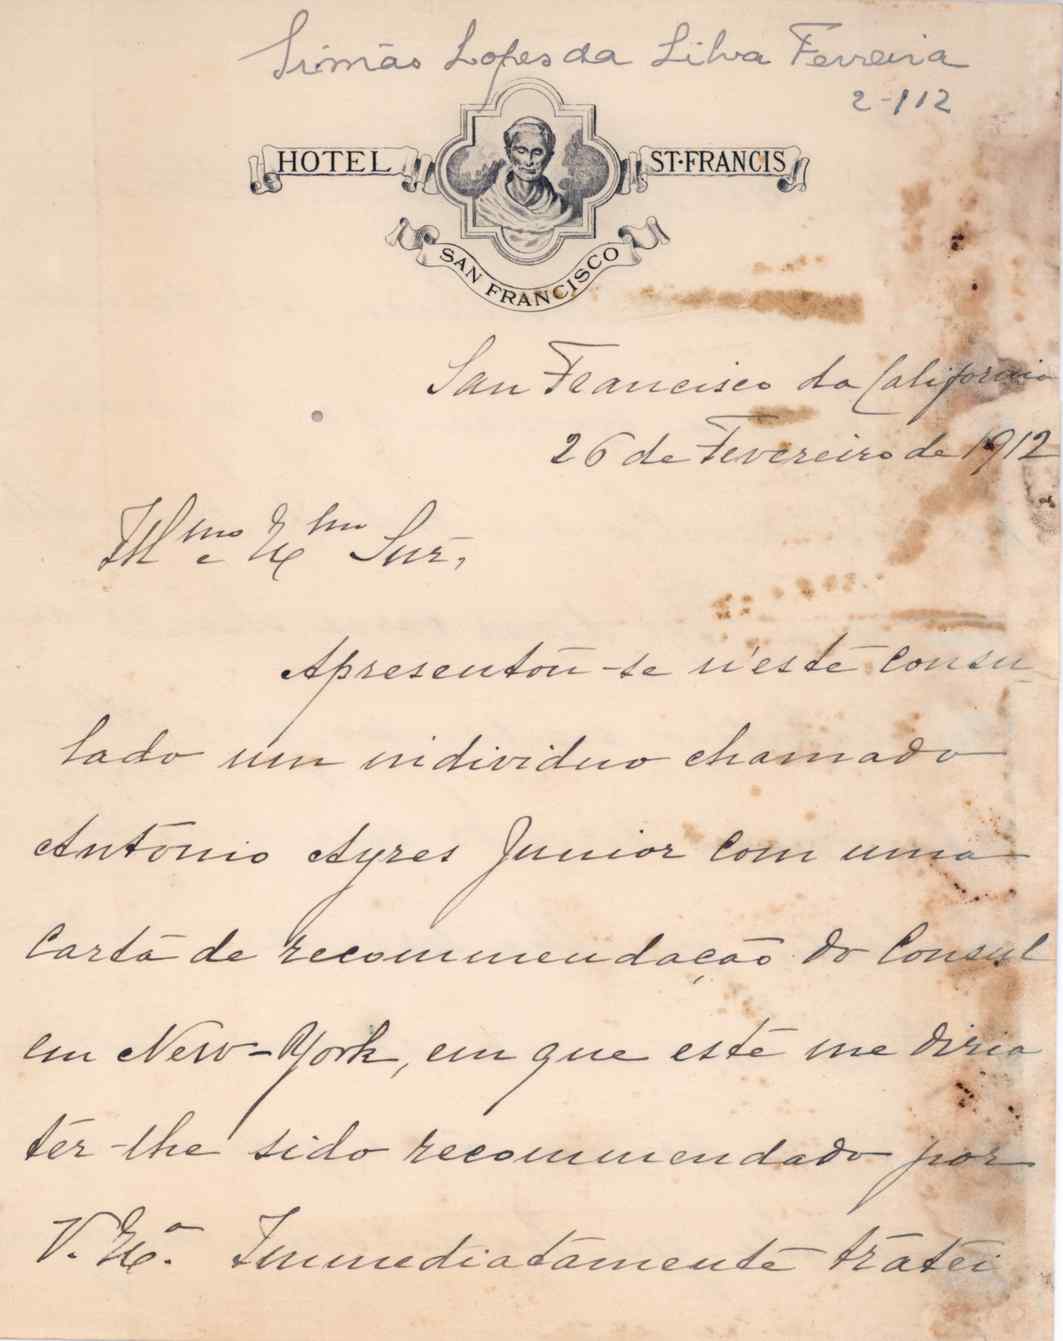 Simão Lopes da Silva Ferreira
2-912
HOTEL ST·FRANCIS
SAN FRANCISCO
San Francisco da California
26 de Fevereiro de 1912
Illmo e Exmo Snr,
Apresentou-se n'este consu-
lado um individuo chamado
Antonio Ayres Junior com uma
carta de recommendação do Consul
em New-York, em que este me diria
ter-lhe sido recommendado por
V. Exa. Immediatamente tratei